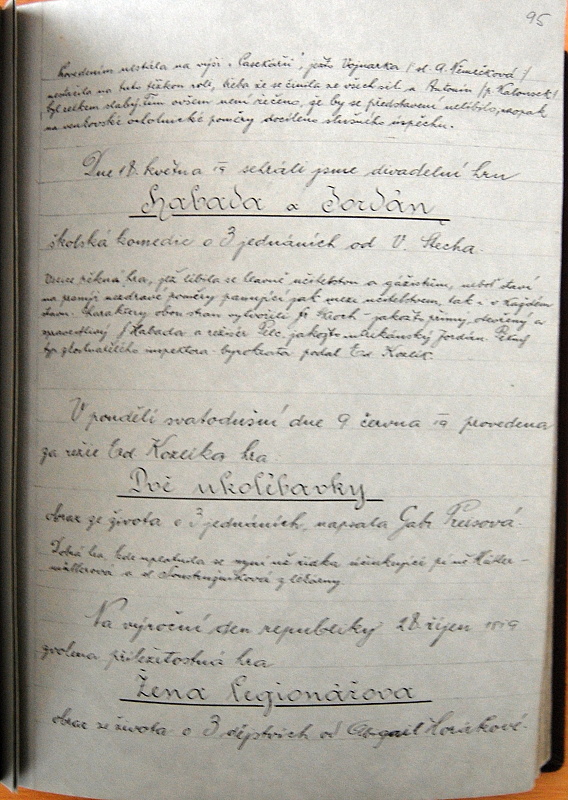 95
Provedením nestála na výši „Pasekářů", jejíž Vojnarka /sl. A. Němečková/
nestačila na tuto těžkou roli, třeba že se činila ze všech sil a Antonín /p. Kalousek/
byl celkem slabý. Tím ovšem není řečeno, že by se představení nelíbilo, naopak
na venkovské ochotnické poměry docíleno slušného úspěchu.
Dne 18. května 19 sehráli jsme divadelní hru
Habada a Jordán
školská komedie o 3 jednáních od V. Štecha.
Velice pěkná hra, jež líbila se hlavně učitelstvu a gážistům, neboť staví
na pranýř nezdravé poměry panující jak mezi učitelstvem, tak i v každém
stavu. Charaktery obou stran vytvořili - jakožto přímý, otevřený a
spravedlivý Habada a režisér Pelc jakožto Jordán. Pěkný
typ inspektora - byrokrata podal Ed. Kozlík.
V pondělí svatodušní dne 9 června 19 provedena
za režie Ed. Kozlíka hra
Dvě ukolébavky
obraz ze života o 3 jednáních, napsala Gabr. Preisová.
Dobrá hra, kde uplatnila se nyní už zřídka účinkující pí
a sl. z lékárny.
Na výroční den republiky 28 říjen 1919
zvolena příležitostná hra
Žena legionářova
obraz ze života o 3 dějstvích od Abigail Horákové.